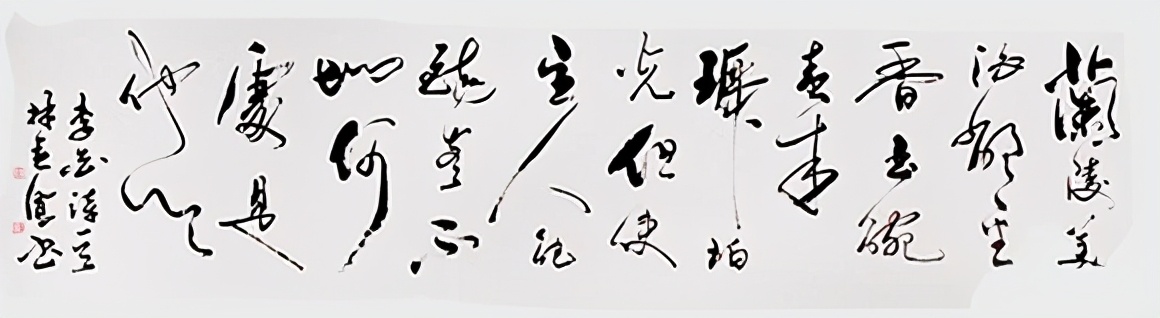 蘭陵美
酒鬱金
香玉碗
盛来
琥珀
光但使
主人能
醉客不
知何
處是
他鄉
李白詩一首
林書